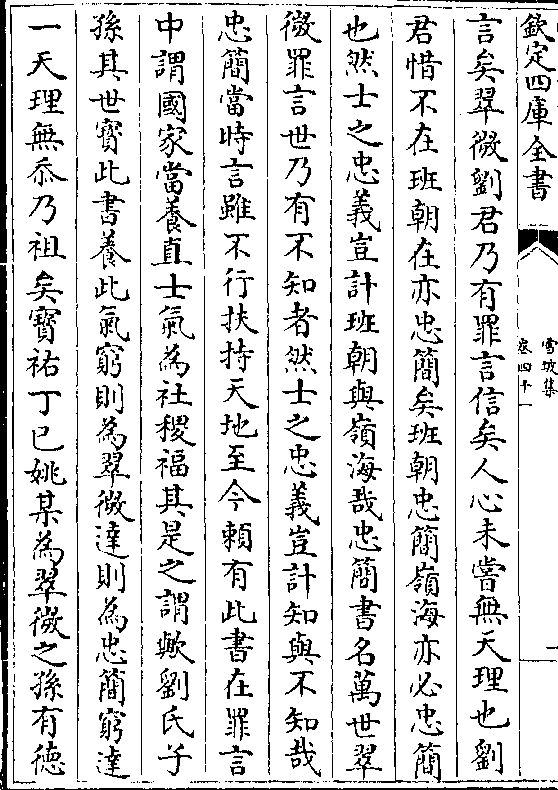 欽定四庫全書
雪坡集
卷四十一
言矣翠微劉君乃有罪言信矣人心未嘗無天理也劉
君惜不在班朝在亦忠簡矣班朝忠簡嶺海亦必忠簡
也然士之忠義豈計班朝與嶺海哉忠簡書名萬世翠
微罪言世乃有不知者然士之忠義豈計知與不知哉
忠簡當時言雖不行扶持天地至今賴有此書在罪言
中謂國家當養直士氣為社稷福其是之謂歟劉氏子
孫其世寳此書養此氣窮則為翠微達則為忠簡窮達
一天理無忝乃祖矣寳祐丁巳姚某為翠微之孫有德